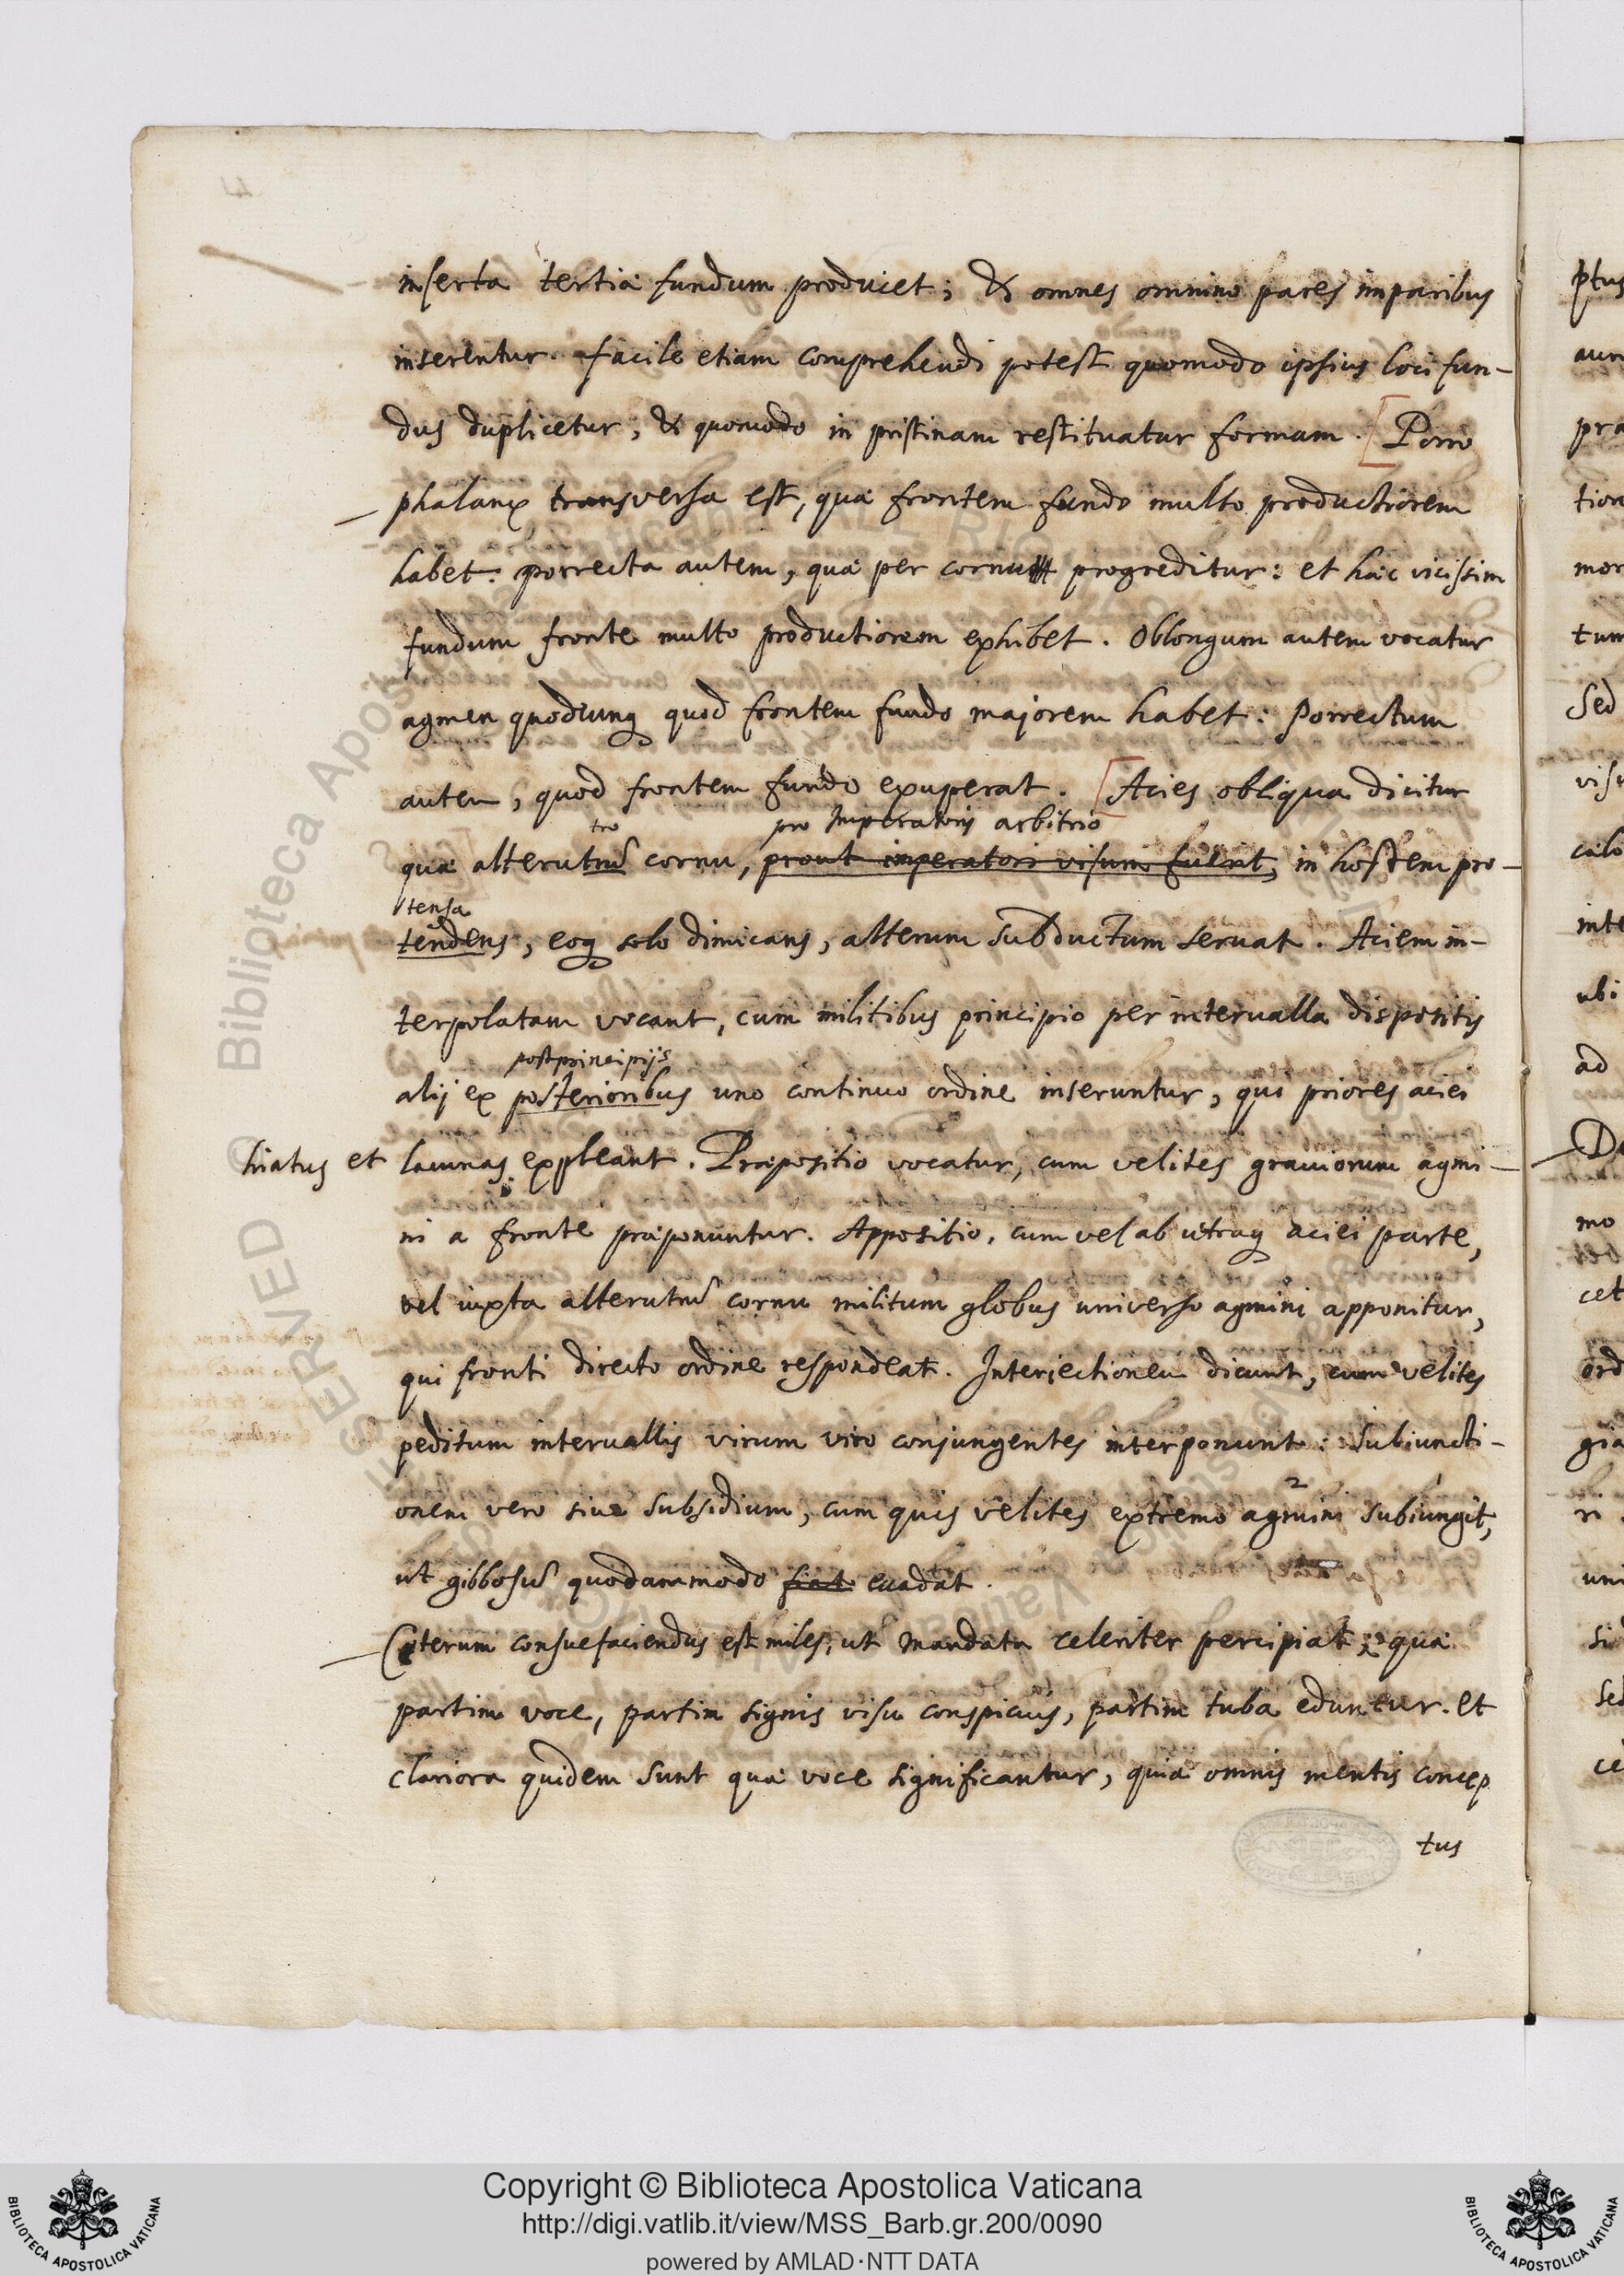 inserta tertiâ fundum producet; & omnes omnino pares imparibus
inserentur. facile etiam comprehendi potest quomodo ipsius loci fun-
dus duplicetur; & quomodo in pristinam restituatur formam. [Porro
phalanx transversa est, quæ frontem fundo multo productiorem
habet: porrecta autem, quæ per cornu progreditur: et hæc vicissim
fundum fronte multo productiorem exhibet. Oblongum autem vocatur
agmen quodcunq quod frontem fundo majorem habet: Porrectum
autem, quod frontem fundo exuperat. [Acies obliqua dicitur
tro pro Imperatoris arbitrio
quæ alterutrũ cornu, prout imperatori visum fuerit, in hostem pro-
tensa
tendens, eoq solo dimicans, alterum subductum servat. Aciem in-
terpolatam vocant, cum militibus principio per intervalla dispositis
postprincipijs
alij ex posterioribus uno continuo ordine inseruntur, qui priores aciei
hiatus et lacunas expleant. Præpositio vocatur, cum velites graviorum agmi-
ni a fronte præponuntur. Appositio, cum vel ab utraq aciei parte,
vel iuxta alterutrũ cornu militum globus universo agmini apponitur,
qui fronti directo ordine respondeat. Interiectionem dicunt, cum velites
peditum intervallis virum viro conjungentes interponunt: Subiuncti-
onem vero sive subsidium, cum quis velites extremo agmini subiungit,
2
ut gibbosũ quodammodo fiat evadat.
Cæterum consuefaciendus est miles, ut mandata celeriter percipiat; quæ
partim voce, partim signis visu conspicuis, partim tuba eduntur. et
clariora quidem sunt quæ voce significantur, quia omnis mentis concep
tus
ptus
pra
tion
mor
tum
Sed
calo
inte
ubi
ad
mo
cet
ord
gia
uni
si
sed
ce
Copyright © Biblioteca Apostolica Vaticana
http://digi.vatlib.it/view/MSS_Barb.gr.200/0090
powered by AMLAD·NTT DATA
BIBLIOTECA APOSTOLICA VATICANA
BIBLIOTECA APOSTOLICA VATICANA